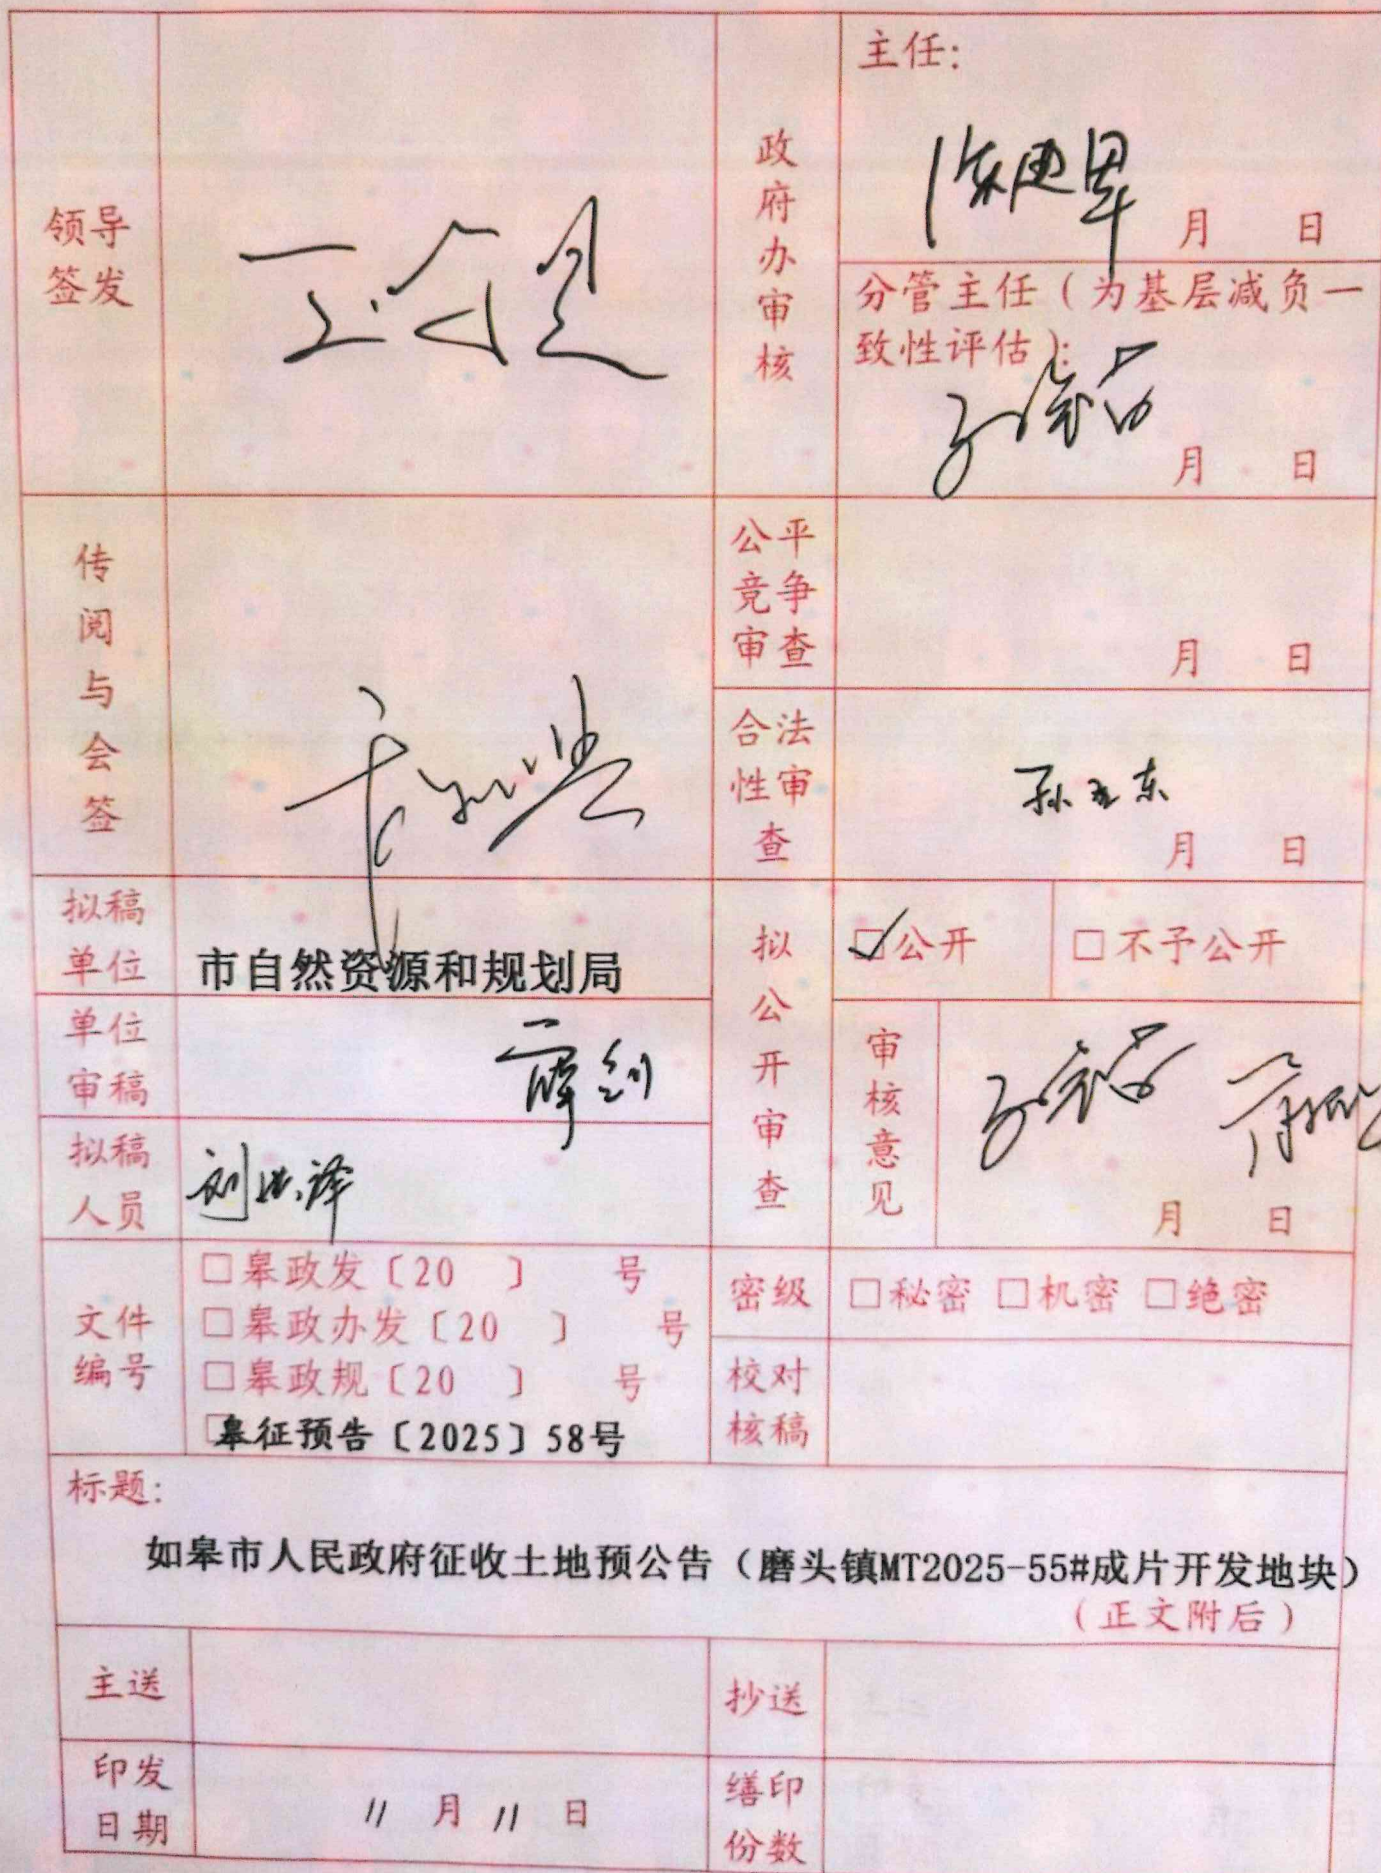 领导
签发
政府办审核
主任:
月 日
分管主任（为基层减负一
致性评估）:
月 日
传阅与会签
公平
竞争
审查
月 日
合法
性审
查
月 日
拟稿
单位
市自然资源和规划局
拟公开审查
☑公开
□不予公开
单位
审稿
审核意见
月 日
拟稿
人员
文件
编号
□皋政发〔20 〕 号
□皋政办发〔20 〕 号
□皋政规〔20 〕 号
□皋征预告〔2025〕58号
密级
□秘密 □机密 □绝密
校对
核稿
标题:
如皋市人民政府征收土地预公告（磨头镇MT2025-55#成片开发地块）
（正文附后）
主送
抄送
印发
日期
11 月 11 日
缮印
份数